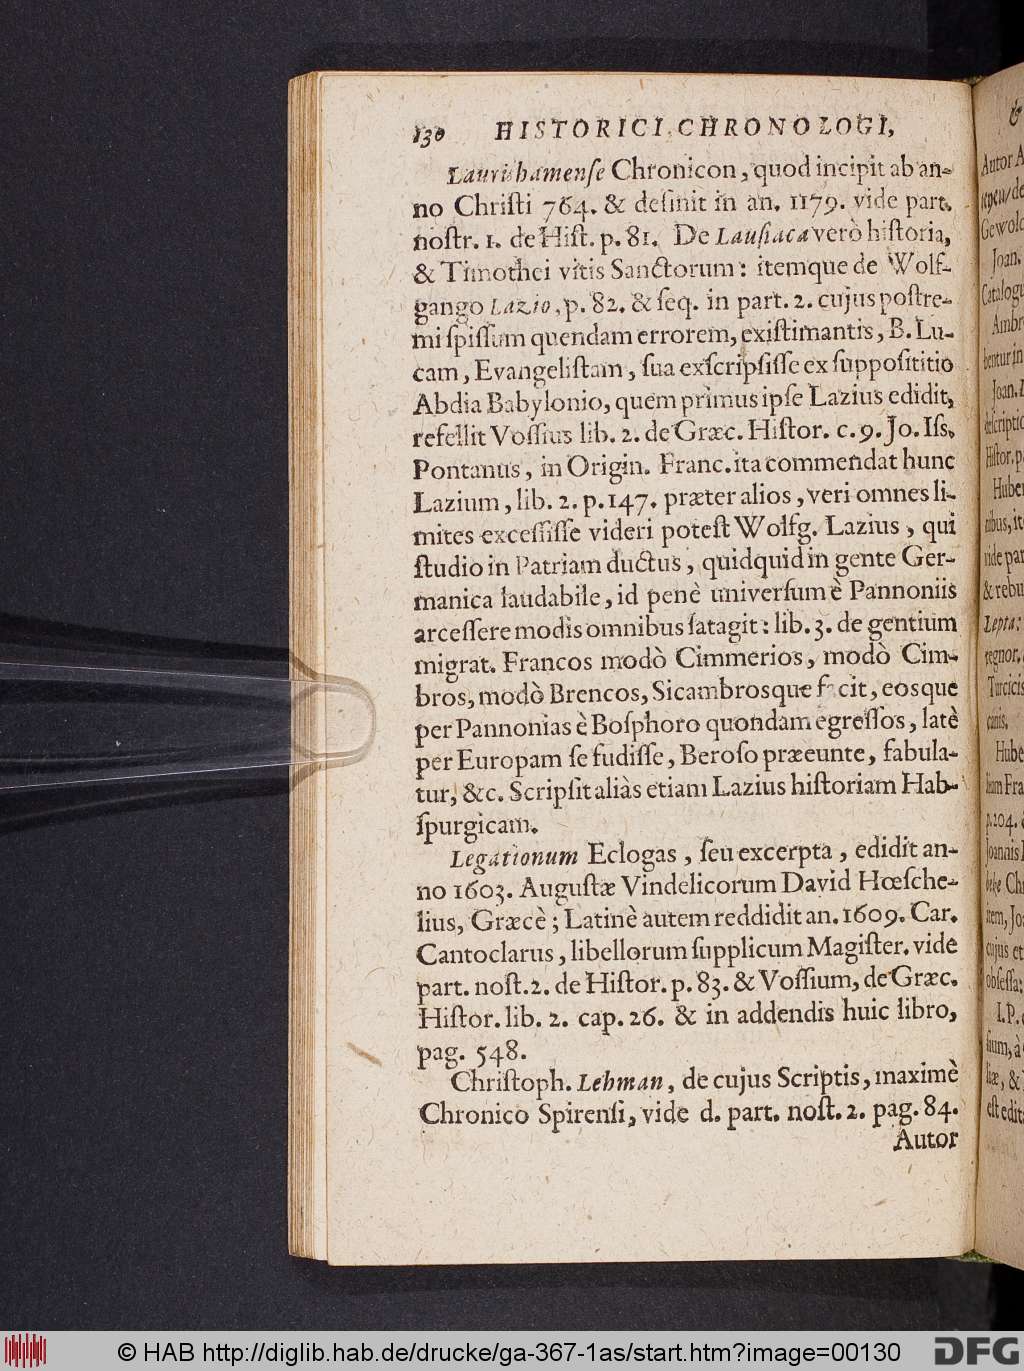 130 HISTORICI, CHRONOLOGI,
Laurishamenſe Chronicon, quod incipit ab an-
no Chriſti 764. & deſinit in an. 1179. vide part.
noſtr. 1. de Hiſt. p. 81. De Lauſiaca verò hiſtoria,
& Timothei vitis Sanctorum: itemque de Wolf-
gango Lazio, p. 82. & ſeq. in part. 2. cujus poſtre-
mi ſpiſſum quendam errorem, exiſtimantis, B. Lu-
cam, Evangeliſtam, ſua exſcripſiſſe ex ſuppoſititio
Abdia Babylonio, quem primus ipſe Lazius edidit,
refellit Voſſius lib. 2. de Græc. Hiſtor. c. 9. Jo. Iſſ.
Pontanus, in Origin. Franc. ita commendat hunc
Lazium, lib. 2. p. 147. præter alios, veri omnes li-
mites exceſſiſſe videri poteſt Wolfg. Lazius, qui
ſtudio in Patriam ductus, quidquid in gente Ger-
manica laudabile, id penè univerſum è Pannoniis
arceſſere modis omnibus ſatagit: lib. 3. de gentium
migrat. Francos modò Cimmerios, modò Cim-
bros, modò Brencos, Sicambrosque facit, eosque
per Pannonias è Boſphoro quondam egreſſos, latè
per Europam ſe fudiſſe, Beroſo præeunte, fabula-
tur, &c. Scripſit aliàs etiam Lazius hiſtoriam Hab-
ſpurgicam.
Legationum Eclogas, ſeu excerpta, edidit an-
no 1603. Auguſtæ Vindelicorum David Hœſche-
lius, Græcè; Latinè autem reddidit an. 1609. Car.
Cantoclarus, libellorum ſupplicum Magiſter. vide
part. noſt. 2. de Hiſtor. p. 83. & Voſſium, de Græc.
Hiſtor. lib. 2. cap. 26. & in addendis huic libro,
pag. 548.
Chriſtoph. Lehman, de cujus Scriptis, maximè
Chronico Spirenſi, vide d. part. noſt. 2. pag. 84.
Autor
&
Autor A
de
Gewold
Joan.
Catalogu
Ambr
bentur in
Joan. L
deſcriptio
Hiſtor. p
Huber
nibus, it
vide par
& rebu
Lepta:
regnor.
Turcicis
canis.
Hube
lium Fra
p. 204. &
Joannis
Chr
item, Jo
cujus et
obſeſſa;
I. P.
ſium, à
liæ, &
eſt edit
© HAB http://diglib.hab.de/drucke/ga-367-1as/start.htm?image=00130
DFG